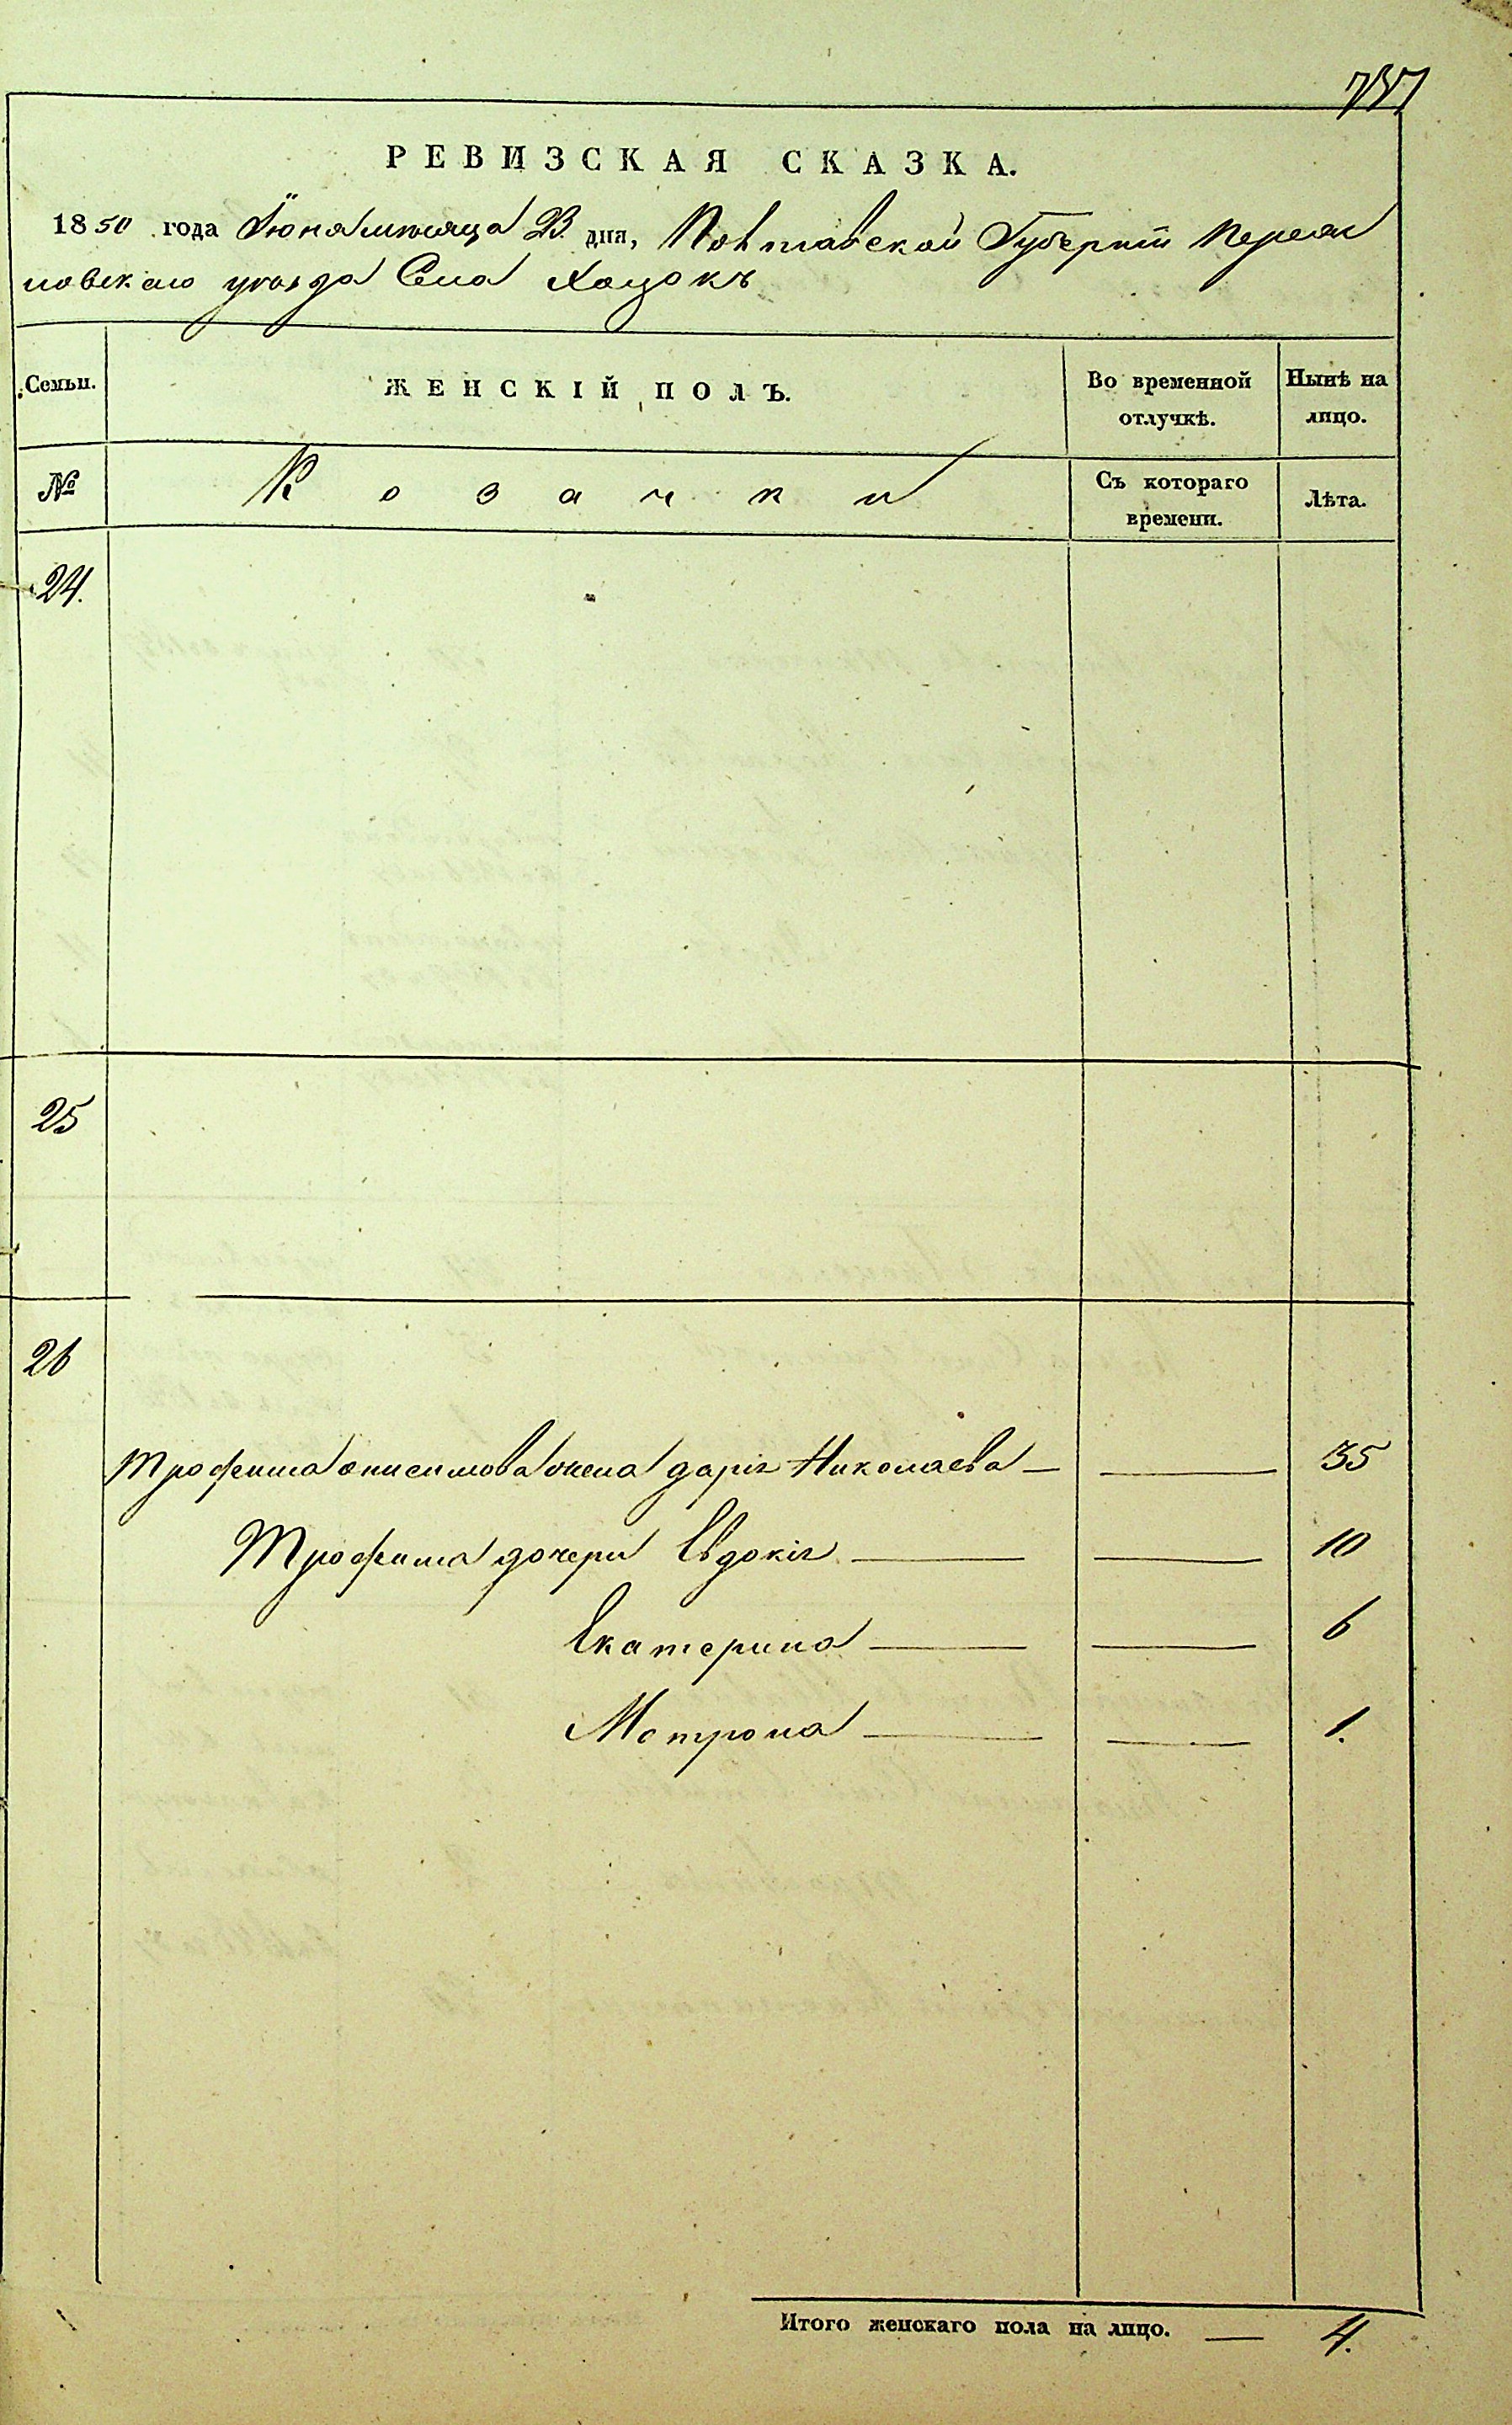 737
РЕВИЗСКАЯ СКАЗКА.
1850 года Іюня месяца 23 дня, Полтавской Губерніи Переяс
ловскаго уезда Села Хоцокъ
Семьи. ЖЕНСКІЙ ПОЛЪ. Во временной отлучкѣ. Нынѣ на лицо.
№ Козачки Съ котораго времени. Лѣта.
24.
25
26
Трофима Анисимова жена Дарія Николаева — — 35
Трофима дочери Евдокія — — 10
Екатерина — — 6
Мотрона — — 1.
Итого женскаго пола на лицо. — 4.